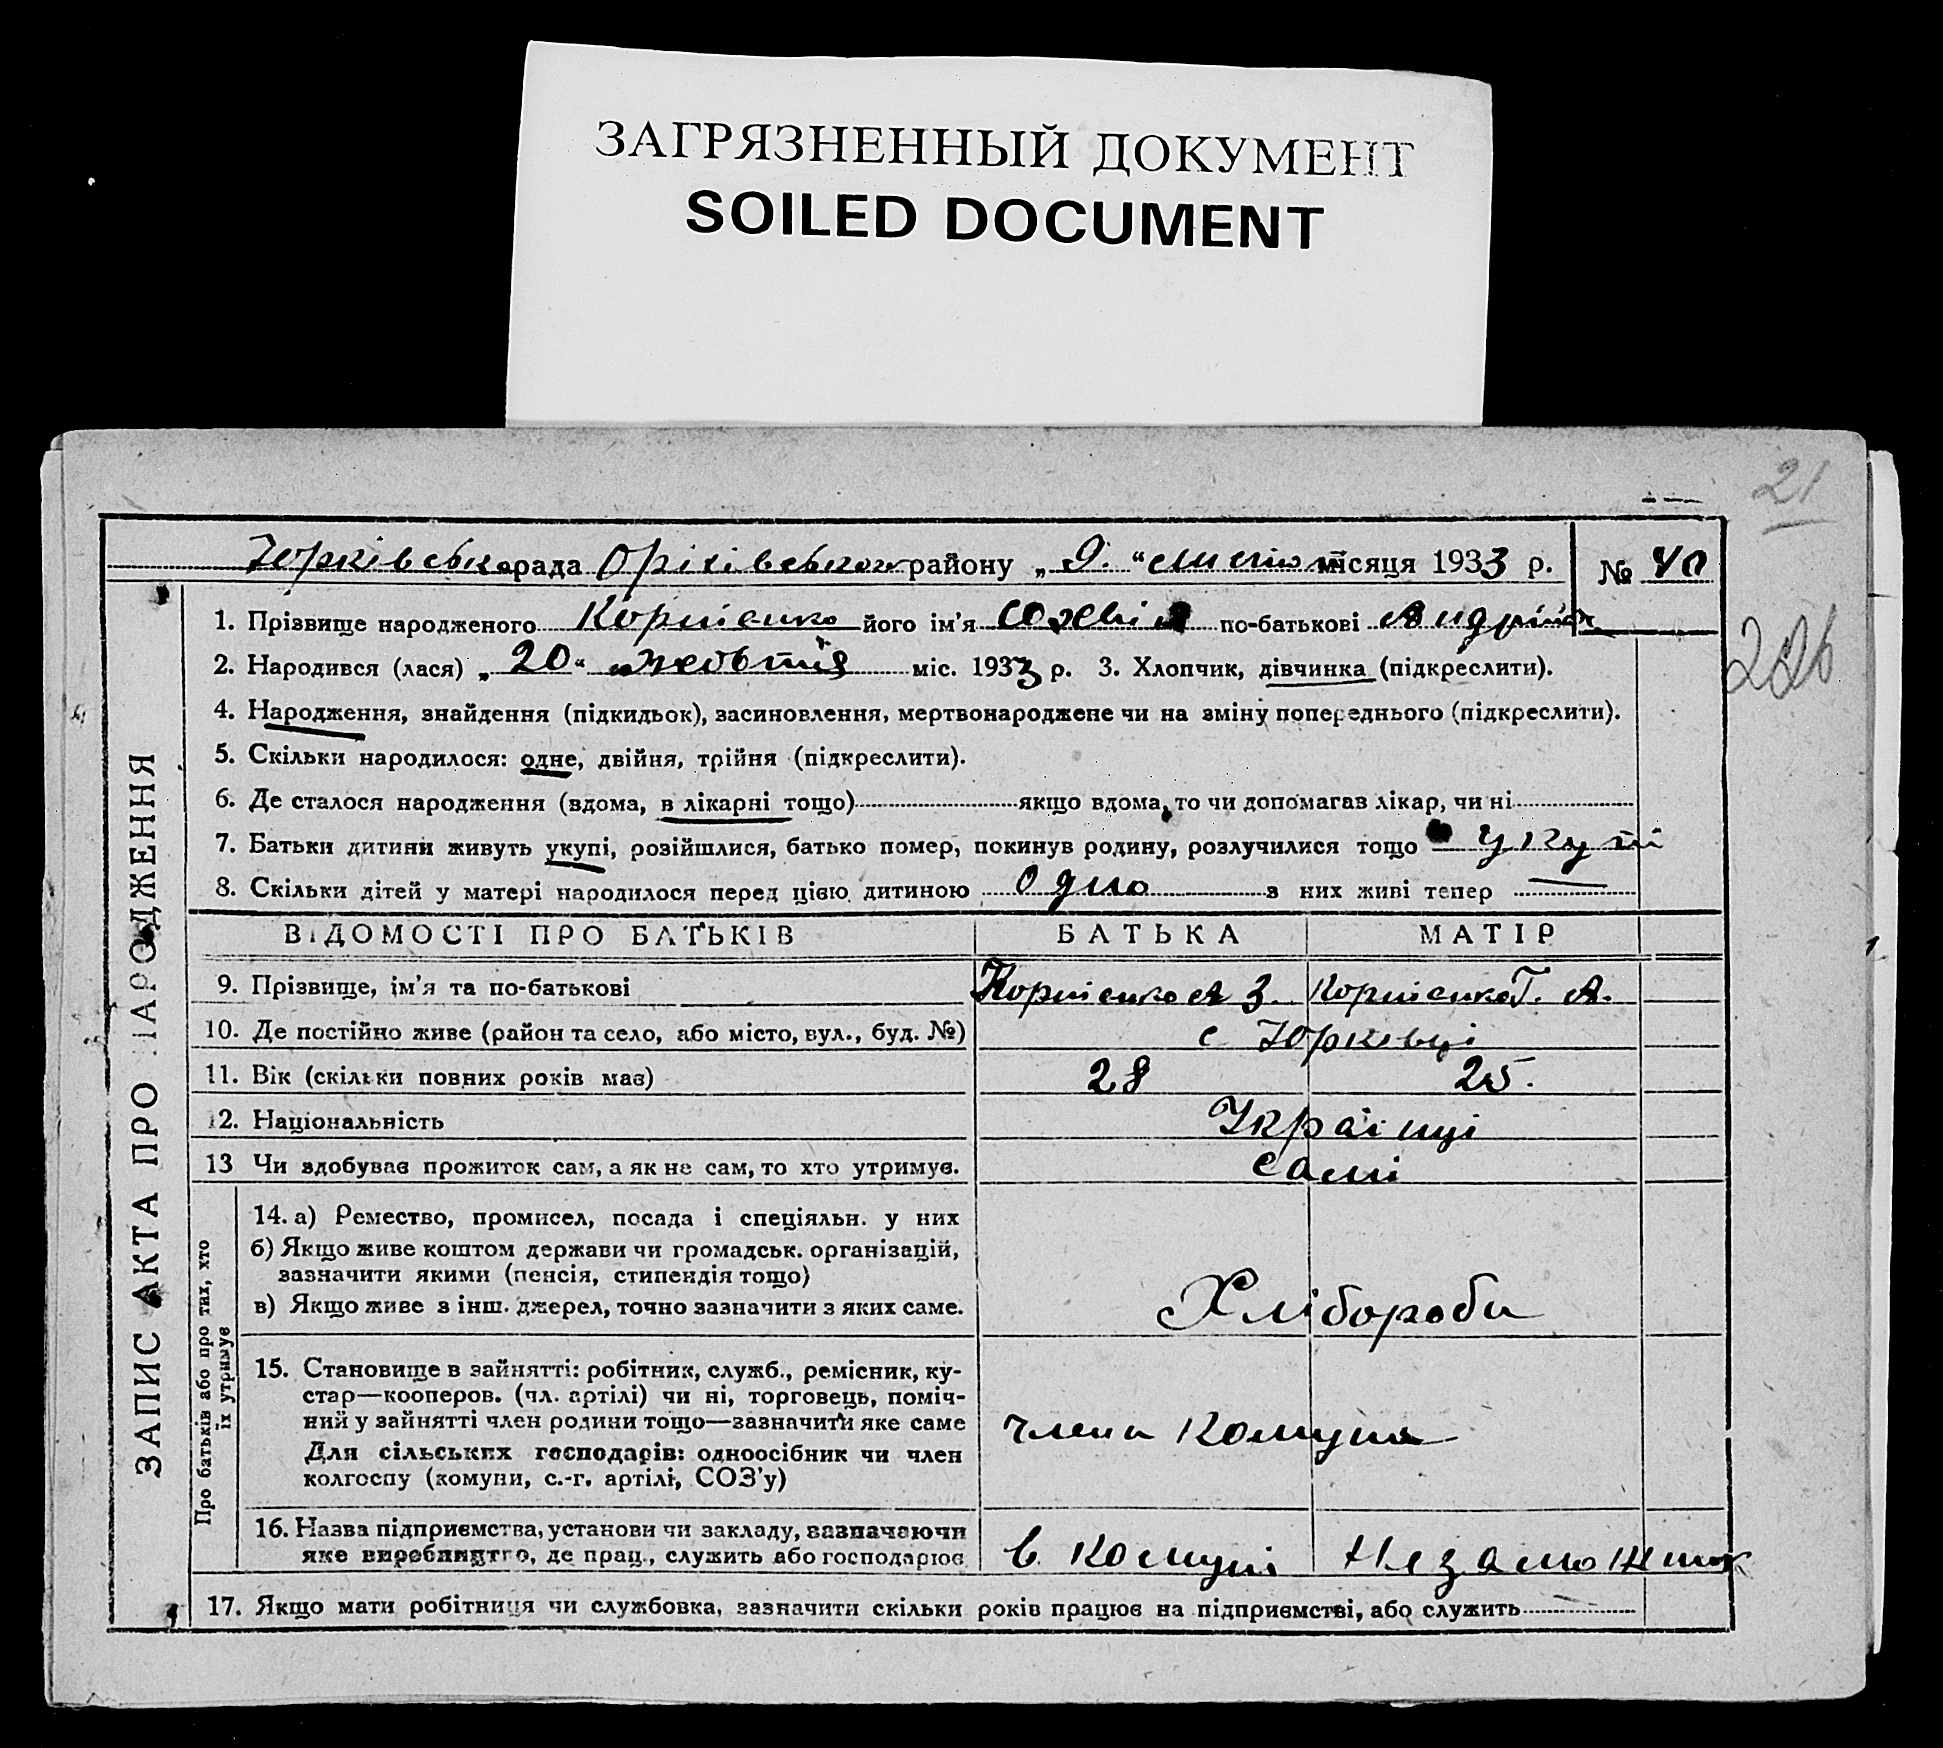 ЗАГРЯЗНЕННЫЙ ДОКУМЕНТ
SOILED DOCUMENT
21
Юрківська рада Оріхівського району „9.“ місяця 1933 р. № 40
226
ЗАПИС АКТА ПРО НАРОДЖЕННЯ
1. Прізвище народженого Корнієнко його ім'я по-батькові Андрій
2. Народився (лася) „20“ жовтня міс. 1933 р. 3. Хлопчик, дівчинка (підкреслити).
4. Народження, знайдення (підкидьок), засиновлення, мертвонароджене чи на зміну попереднього (підкреслити).
5. Скільки народилося: одне, двійня, трійня (підкреслити).
6. Де сталося народження (вдома, в лікарні тощо) якщо вдома, то чи допомагав лікар, чи ні
7. Батьки дитини живуть укупі, розійшлися, батько помер, покинув родину, розлучилися тощо укупі
8. Скільки дітей у матері народилося перед цією дитиною одно з них живі тепер —
ВІДОМОСТІ ПРО БАТЬКІВ БАТЬКА МАТІР
9. Прізвище, ім'я та по-батькові Корнієнко А З. Корнієнко Г. А.
10. Де постійно живе (район та село, або місто, вул., буд. №) с Юрківці
11. Вік (скільки повних років має) 28 25.
12. Національність Українці
13 Чи здобував прожиток сам, а як не сам, то хто утримує. самі
Про батьків або про тих, хто
їх утримує
14. а) Ремество, промисел, посада і спеціяльн. у них
б) Якщо живе коштом держави чи громадськ. організацій,
зазначити якими (пенсія, стипендія тощо)
в) Якщо живе з інш. джерел, точно зазначити з яких саме. Хлібороби
15. Становище в зайнятті: робітник, служб., ремісник, ку-
стар—кооперов. (чл. артілі) чи ні, торговець, поміч-
ний у зайнятті член родини тощо—зазначити яке саме
Для сільських господарів: одноосібник чи член
колгоспу (комуни, с.-г. артілі, СОЗ'у)
члени Комуни
16. Назва підприємства, установи чи закладу, зазначаючи
яке виробництво, де прац., служить або господарює в Комуні Незаможник
17. Якщо мати робітниця чи службовка, зазначити скільки років працює на підприємстві, або служить